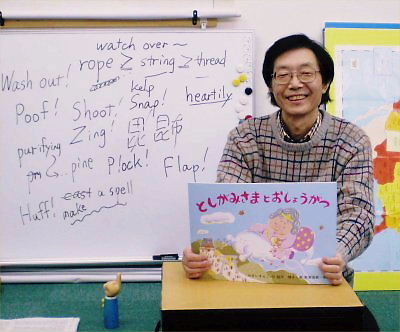 watch over ~
Wash out! rope ≥ string ≥ thread
kelp
Poof! Shoot! Snap! heartily
Zing!
purifying
pine Plock! Flap!
cast a spell
Huff! make
としがみさまとおしょうがつ